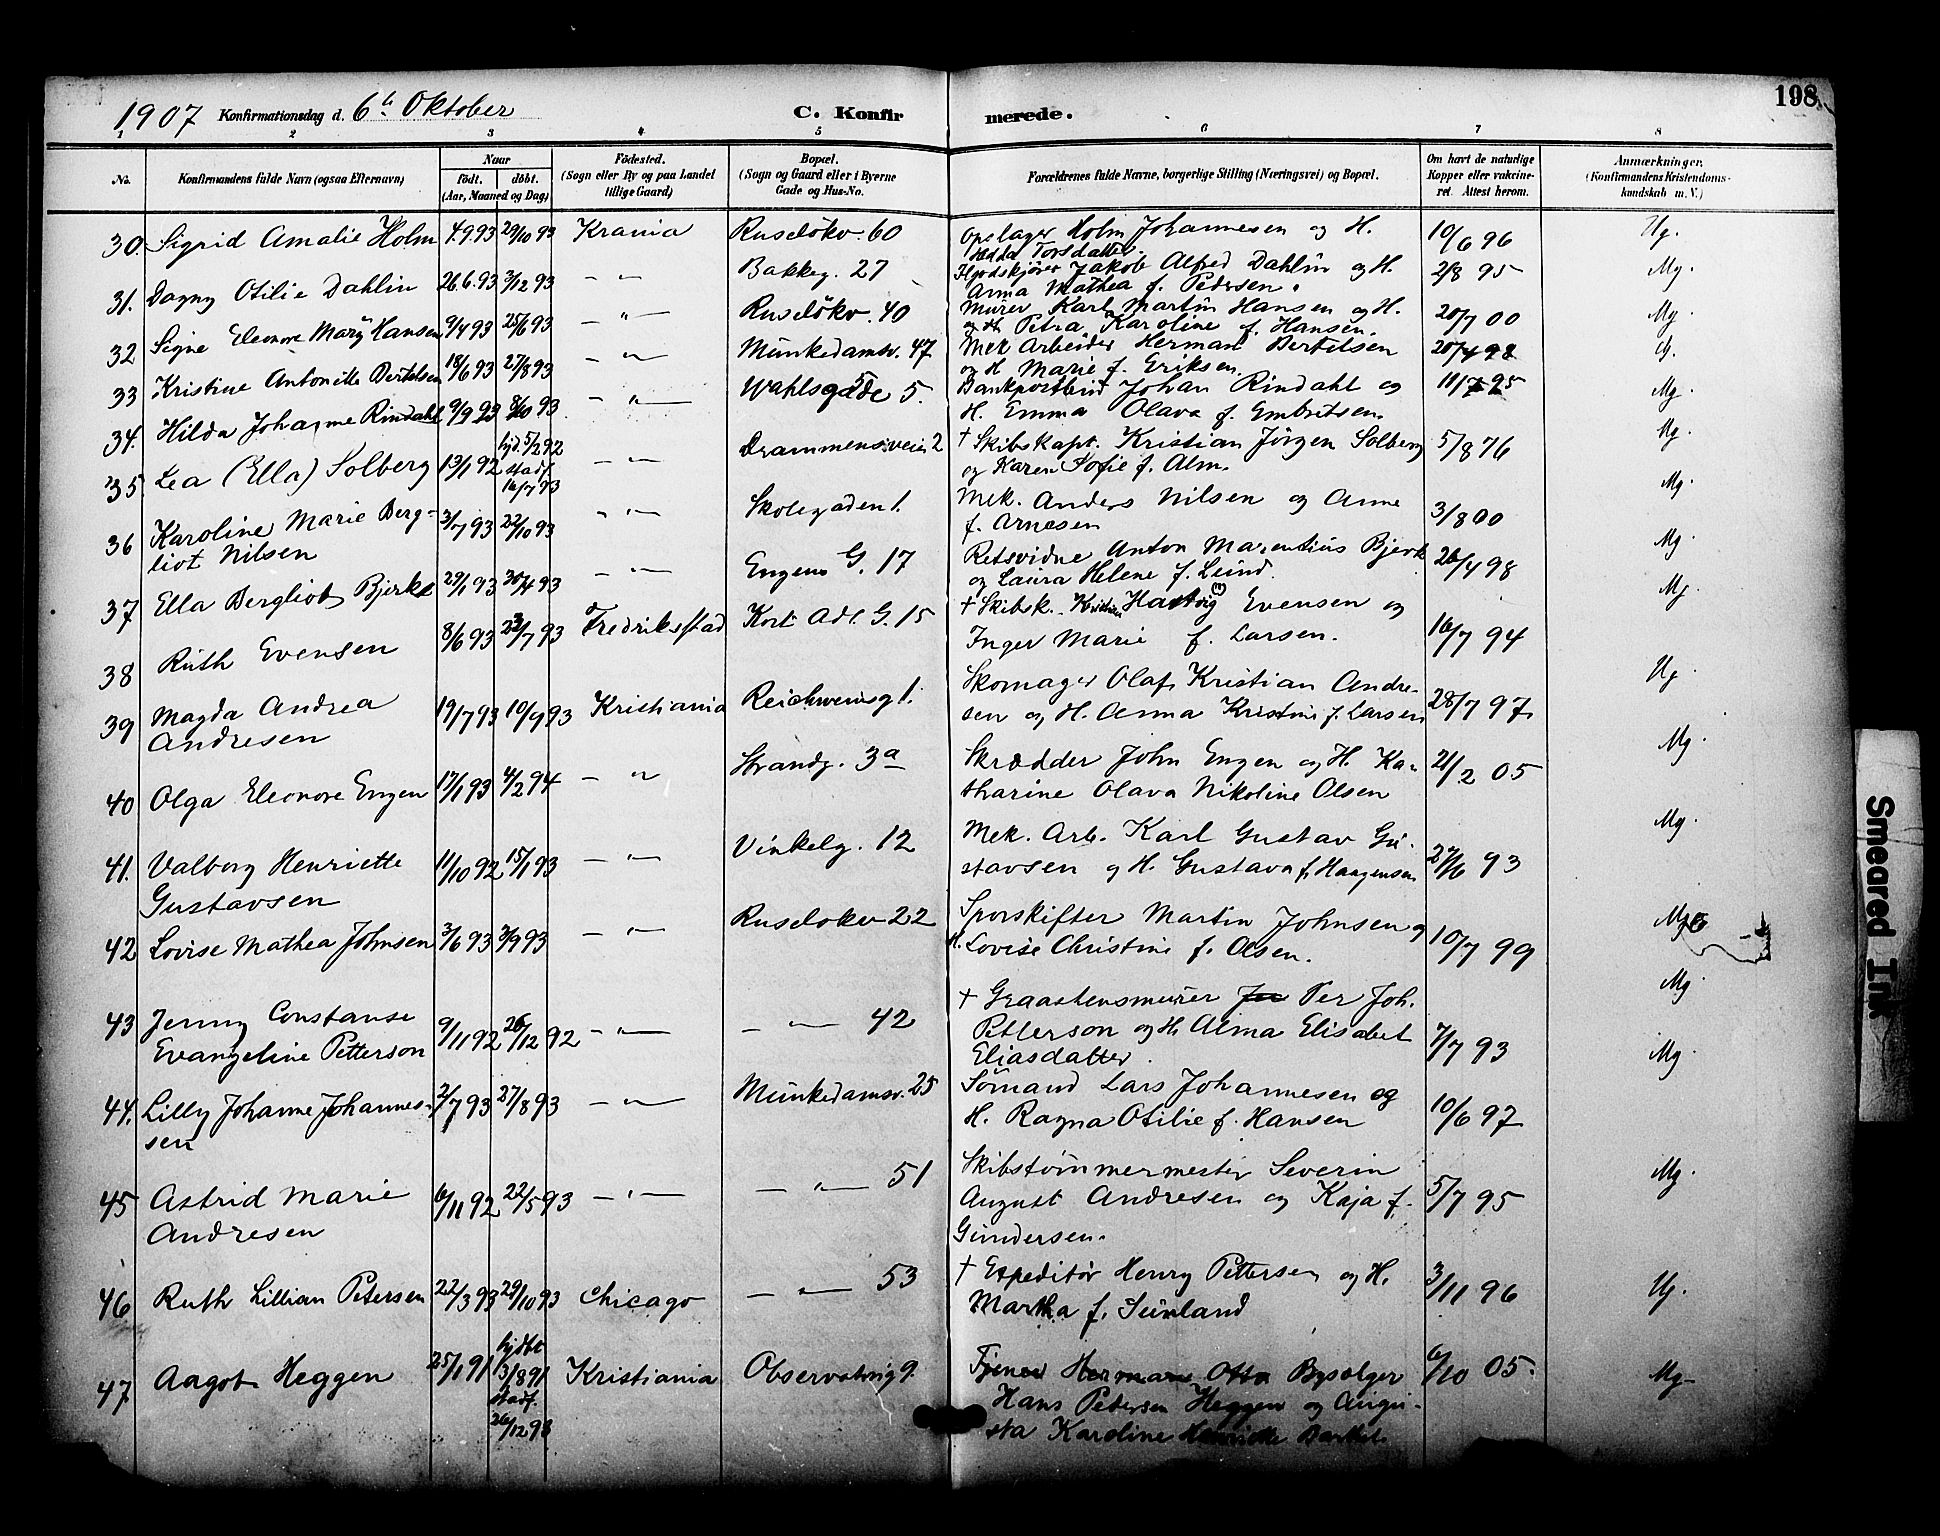 198
1907 Konfirmationsdag d. 6te Oktober C. Konfirmerede.
1 2 3 4 5 6 7 8
No. Konfirmandens fulde Navn (ogsaa Efternavn) Naar født. døbt. (Aar, Maaned og Dag) Fødested. (Sogn eller By og paa Landet tillige Gaard) Bopæl. (Sogn og Gaard eller i Byerne Gade og Hus-No. Forældrenes fulde Navne, borgerlige Stilling (Næringsvei) og Bopæl. Om havt de naturlige Kopper eller vaccineret. Attest herom. Anmærkninger. (Konfirmandens Kristendomskundskab m. V.)
30. Sigrid Amalie Holm 4.9.93 29/10 93 Krania Ruseløkv. 60 Opslager Holm Johannesen og H. 10/6 96 Ug.
Hedda Torsdatter
31. Dagny Otilie Dahlin 26.6.93 3/12 93 — " — Bakkeg. 27 Jakob Alfred Dahlin og H. 2/8 95 Mg.
Anna Mathea f. Pedersen.
32 Signe Eleonore Mary Hansen 9/4 93 25/6 93 — " — Ruseløkv. 40 Murer Karl Martin Hansen og H. 20/7 00 Mg.
Petra Karoline f. Hansen.
33 Kristine Antonette Bertelsen 18/6 93 27/8 93 — " — Munkedamsv. 47 Mek Arbeider Herman Bertelsen 20/4 98 G.
og H Marie f. Eriksen.
34. Hilda Johanne Rindahl 9/9 93 8/10 93 — " — Wahlsgade 5. Bankpostbud Johan Rindahl og 11/7 95 Mg.
H. Emma Olava f. Embretsen.
35 Lea (Ella) Solberg 13/1 92 hjd. 5/2 92 — " — Drammensveien 2 † Skibskapt. Kristian Jørgen Solberg 5/8 76 Mg.
stadf. og Karen Sofie f. Alm.
16/7 93
36 Karoline Marie Berg- 3/7 93 22/10 93 — " — Skolegaden 1. Mek. Anders Nilsen og Anne 3/8 00 Mg.
liot Nilsen f. Arnesen
37 Ella Bergliot Bjerke 29/1 93 30/4 93 — " — Engens G. 17 Retsvidne Anton Marentius Bjerk 26/4 98 Mg.
og Laura Helene f. Lund.
38 Ruth Evensen 8/6 93 23/7 93 Fredriksstad Kort Adl. G. 15 † Skibsk. Kristian Hartvig Evensen og 16/7 94 Mg.
Inger Marie f. Larsen.
39 Magda Andrea 19/7 93 10/9 93 Kristiania Reichweinsg 1. Skomager Olaf Kristian Andre- 28/7 97 Ug
Andresen sen og H. Anna Kristine f. Larsen
40 Olga Eleonore Engen 17/1 93 4/2 94 — " — Strandg. 3a Skrædder John Engen og H. Ka- 21/2 05 Mg.
tharine Olava Nikoline Olsen
41. Valborg Henriette 11/10 92 15/1 93 — " — Vinkelg. 12 Mek. Arb. Karl Gustav Gu- 27/6 93 Mg.
Gustavsen stavsen og H. Gustava f. Haagensen
42 Lovise Mathea Johnsen 3/6 93 3/9 93 — " — Ruseløkv 22 Sporskifter Martin Johnsen og 10/7 99 Mg
H. Lovise Christine f. Olsen.
43 Jenny Constanse 9/11 92 26/12 92 — " — — " — 42 † Graastensmurer Per Joh. 7/7 93 Mg
Evangeline Petterson Petterson og H. Alma Elisabet
Eliasdatter.
44. Lilly Johanne Johannes- 2/7 93 27/8 93 — " — Munkedamsv. 25 Sømand Lars Johannesen og 10/6 97 Mg.
sen H. Ragna Otilie f. Hansen
45 Astrid Marie 6/11 92 22/5 93 — " — — " — 51 Skibstømmermester Severin 5/7 95 Mg.
Andresen August Andresen og Kaja f.
Gundersen.
46 Ruth Lillian Petersen 22/3 93 29/10 93 Chicago — " — 53 † Expeditør Henry Pettersen og H. 3/11 96 Ug.
Martha f. Sunland
47. Aagot Heggen 25/1 91 hjdbt Kristiania Observatrieg 9. Tjener Herman Otto Bysælger 6/10 05. Mg-
3/8 91 Hans Petersen Heggen og Augu-
stadf. sta Karoline Henriette
26/12 93
Smeared Ink